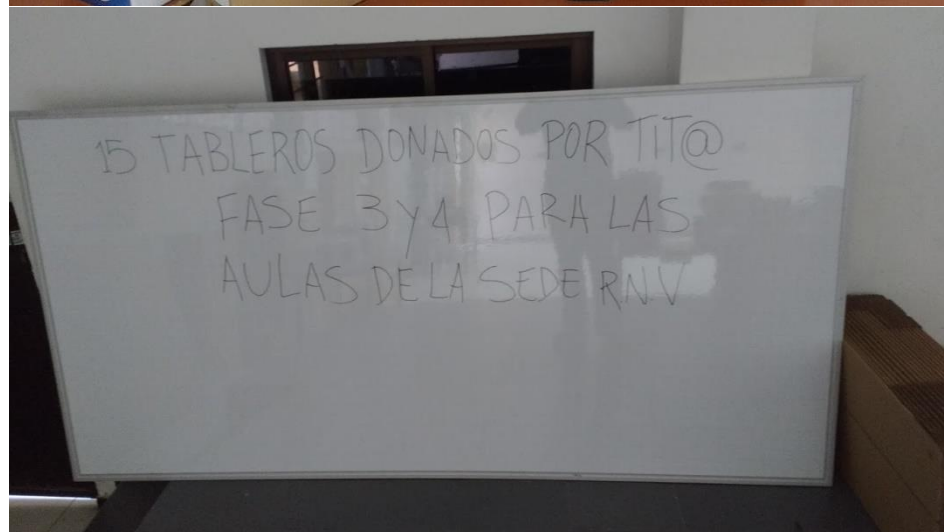 15 TABLEROS DONADOS POR TIT@
FASE 3 Y 4 PARA LAS
AULAS DE LA SEDE R.N.V